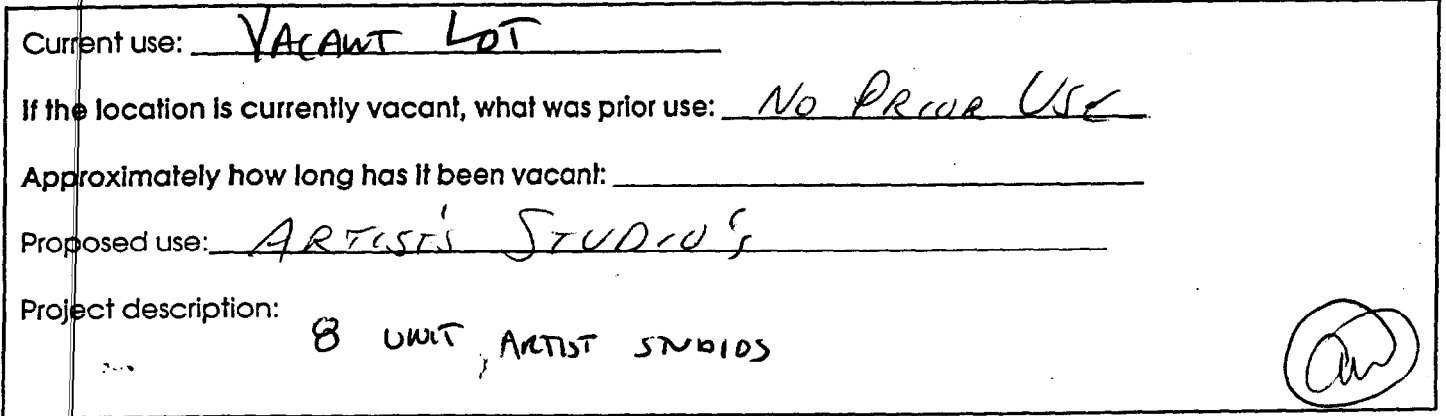 Current use: VACANT LOT
If the location is currently vacant, what was prior use: NO PRIOR USE
Approximately how long has it been vacant:
Proposed use: ARTIST'S STUDIO'S
Project description:
8 UNIT, ARTIST STUDIOS